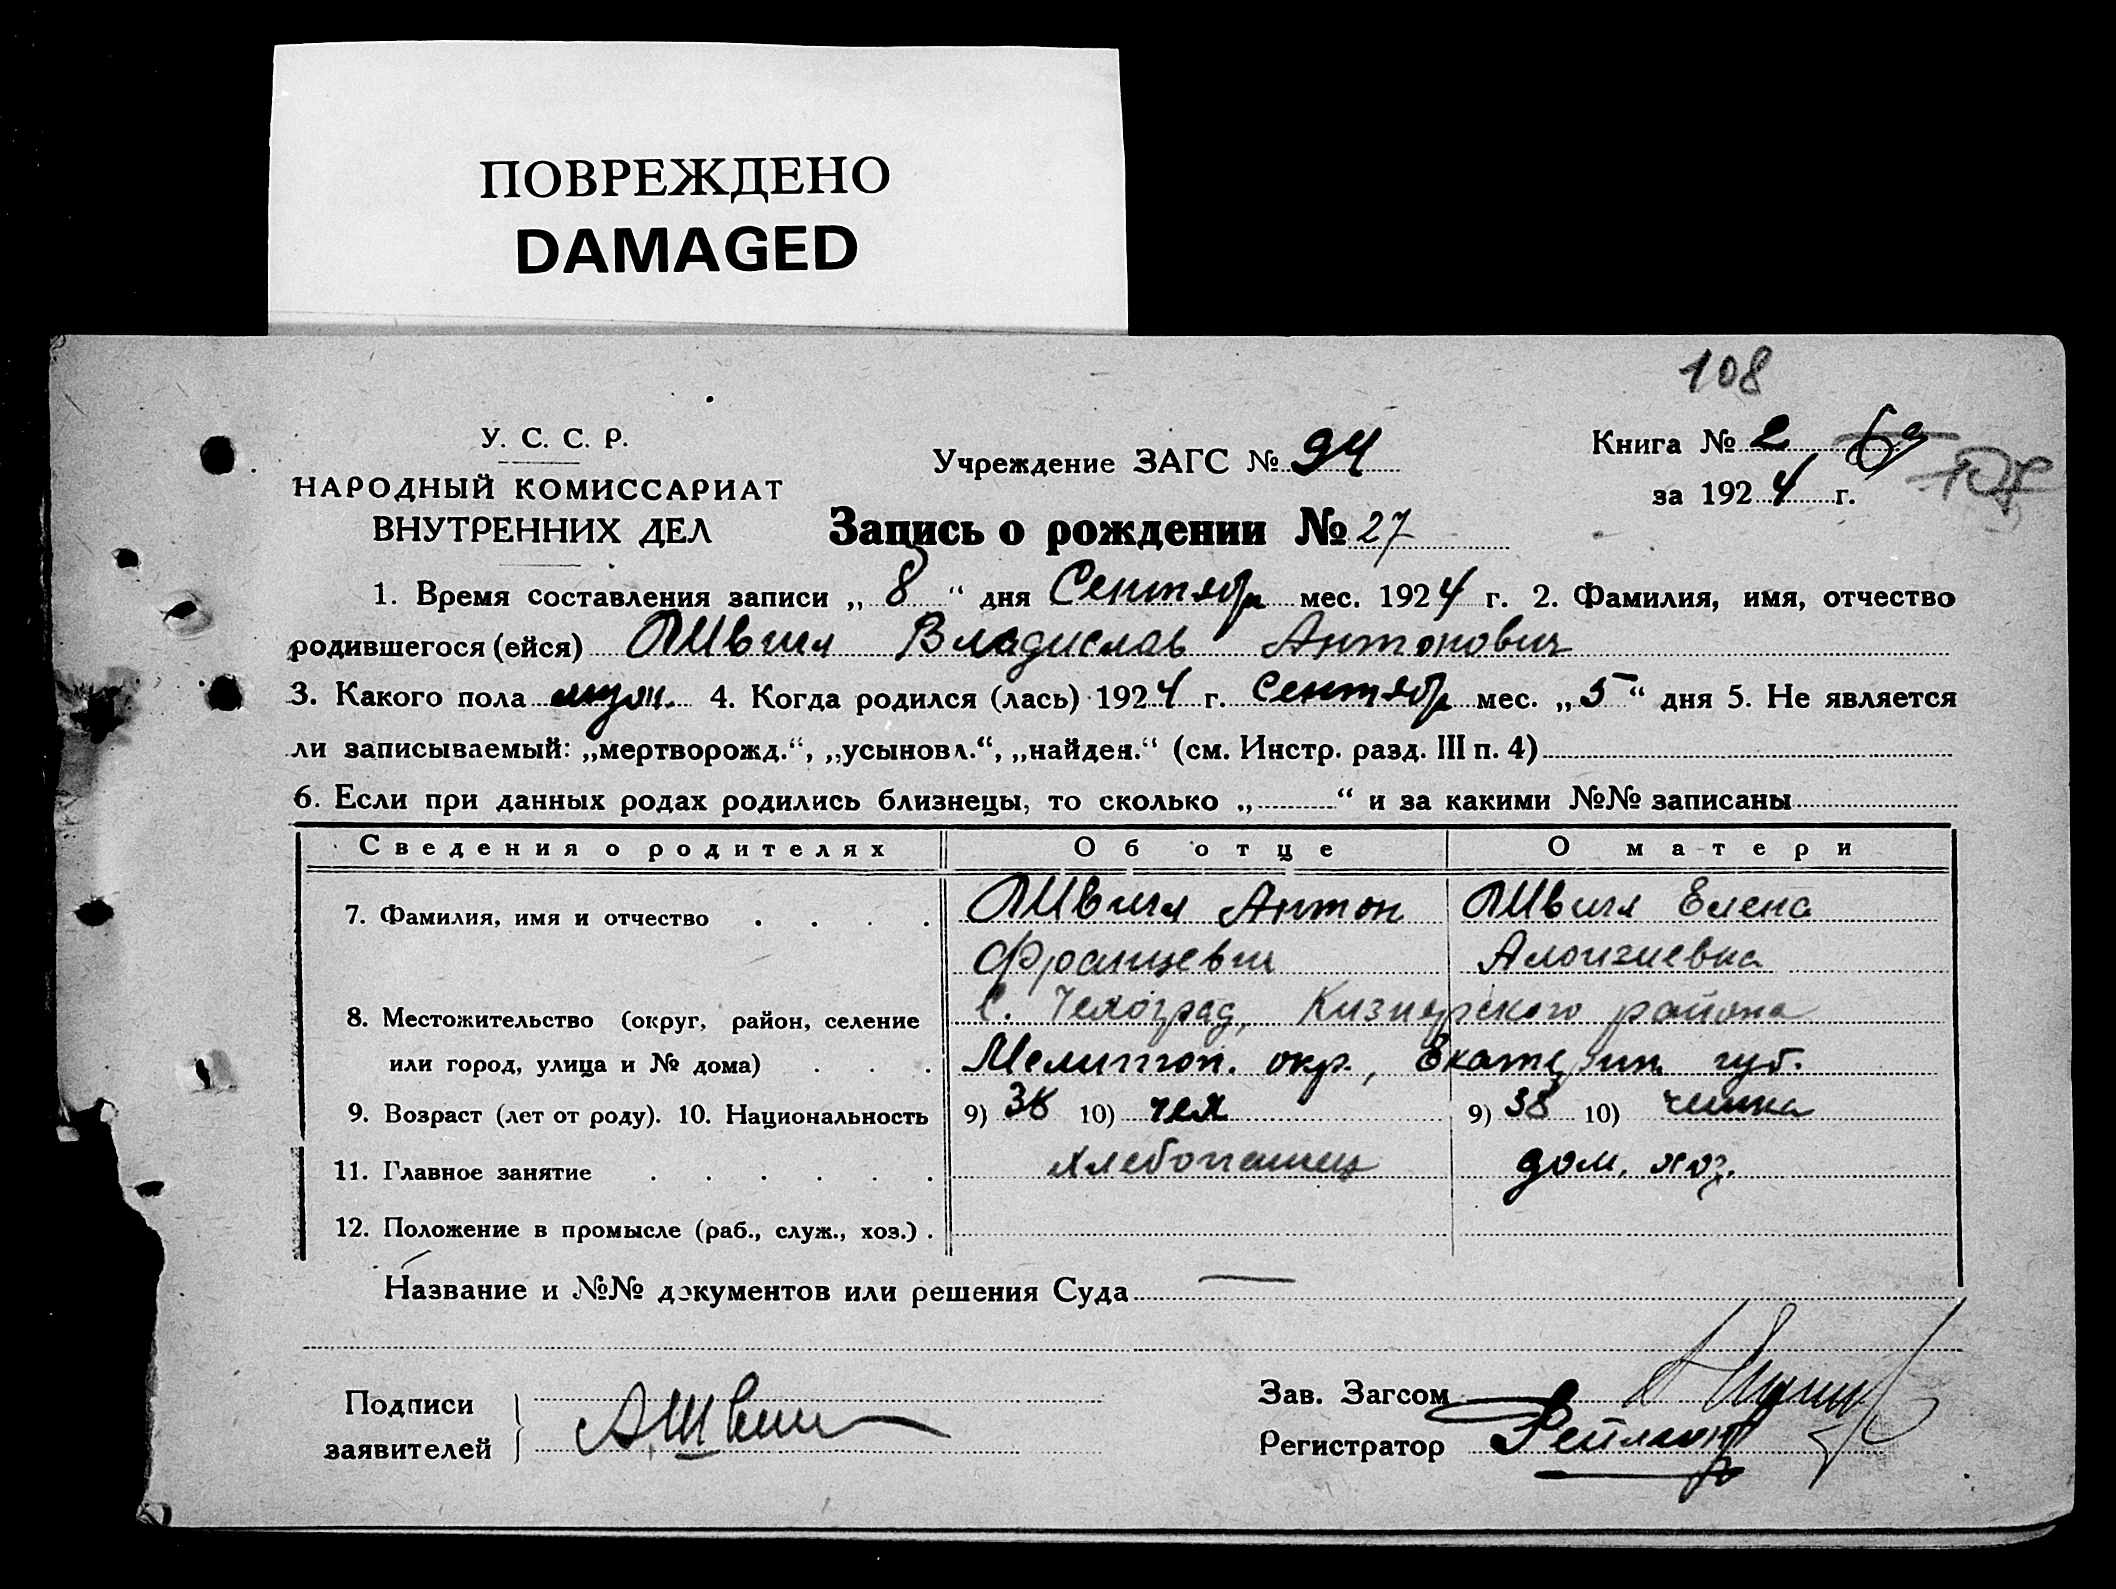 ПОВРЕЖДЕНО
DAMAGED
108
У. С. С. Р.
НАРОДНЫЙ КОМИССАРИАТ
ВНУТРЕННИХ ДЕЛ
Учреждение ЗАГС № 94
Книга № 2
за 1924 г.
Запись о рождении № 27
1. Время составления записи „ 8 “ дня Сентябр мес. 1924 г. 2. Фамилия, имя, отчество
родившегося (ейся) Владислав Антонович
3. Какого пола муж. 4. Когда родился (лась) 1924 г. Сентябр мес. „ 5 “ дня 5. Не является
ли записываемый: „мертворожд.“, „усыновл.“, „найден.“ (см. Инстр. разд. III п. 4)
6. Если при данных родах родились близнецы, то сколько „ “ и за какими №№ записаны
Сведения о родителях Об отце О матери
7. Фамилия, имя и отчество Антон Елена
Францевич Алоизиевна
8. Местожительство (округ, район, селение С. Чехоград, района
или город, улица и № дома) Мелитоп. окр., губ.
9. Возраст (лет от роду). 10. Национальность 9) 38 10) чех 9) 38 10) чешка
11. Главное занятие хлебопашец дом. хоз.
12. Положение в промысле (раб., служ., хоз.)
Название и №№ документов или решения Суда —
Подписи
заявителей
Зав. Загсом
Регистратор